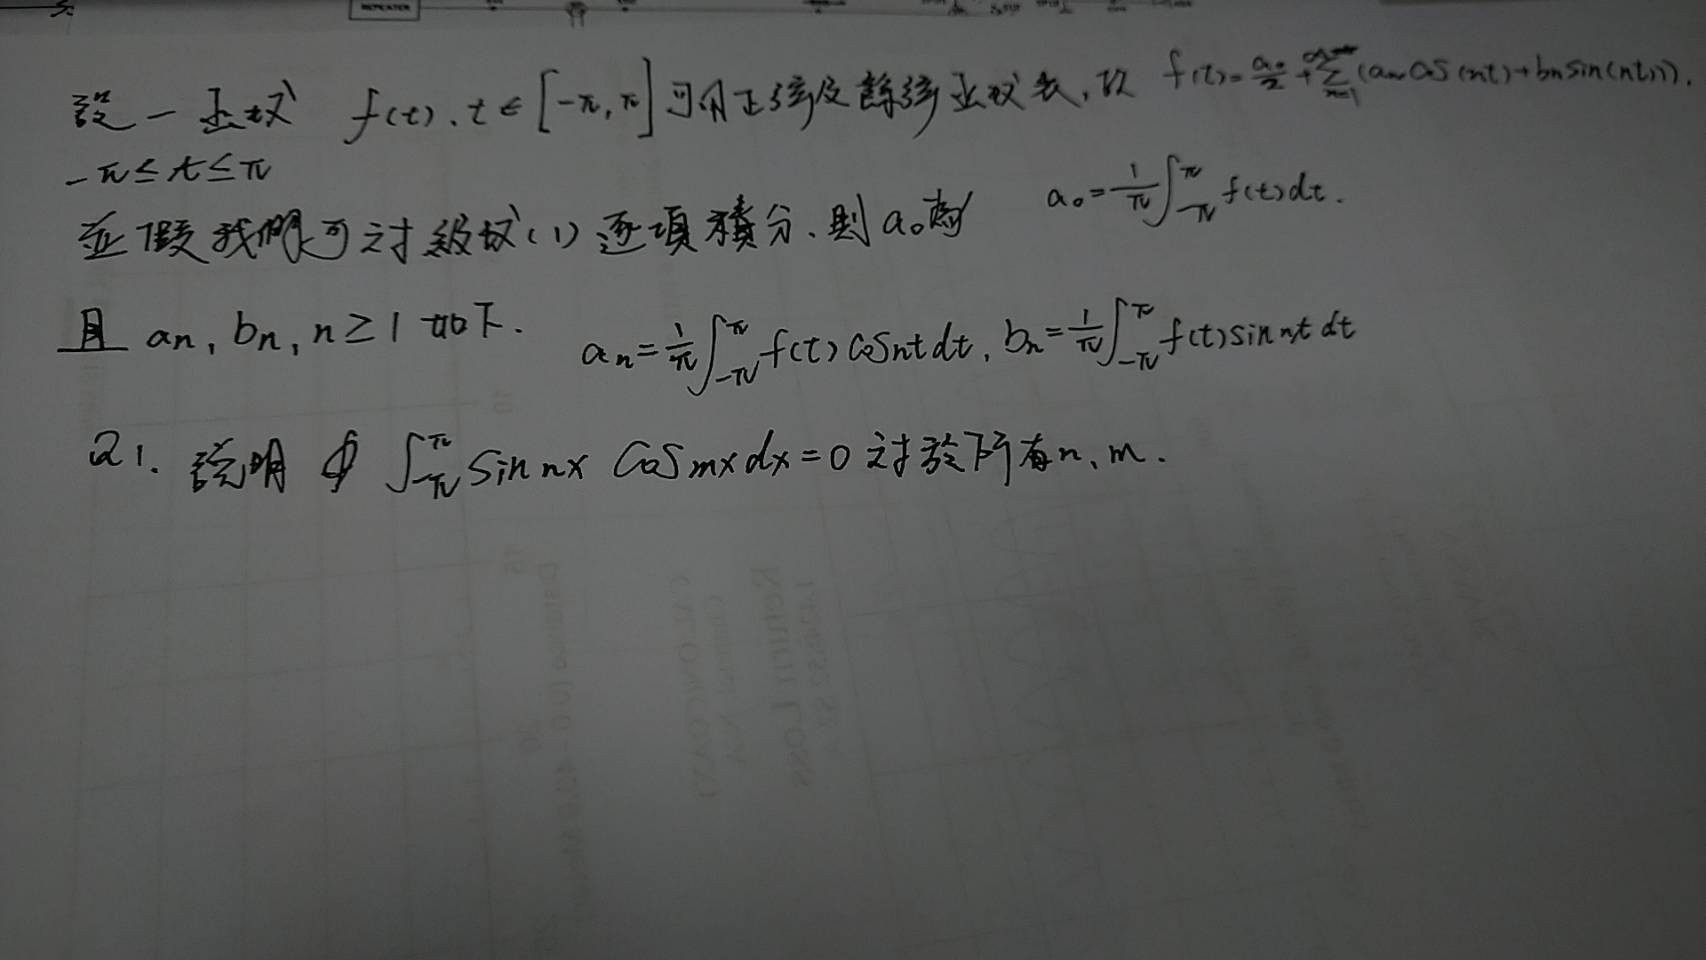 REPEATER
設一函数 f(t), t ∈ [-π, π] 可用正弦及餘弦函数表, 故 f(t) = a₀/2 + ∑_{n=1}^{∞} (aₙ cos(nt) + bₙ sin(nt)).
-π ≤ t ≤ π
並假我們可对級数(1)逐項積分、則 a₀ 為 a₀ = 1/π ∫_{-π}^{π} f(t)dt.
且 aₙ, bₙ, n ≥ 1 如下. aₙ = 1/π ∫_{-π}^{π} f(t) cos nt dt, bₙ = 1/π ∫_{-π}^{π} f(t) sin nt dt
Q1. 說明 ∫_{-π}^{π} sin nx cos mx dx = 0 对於所有 n、m.